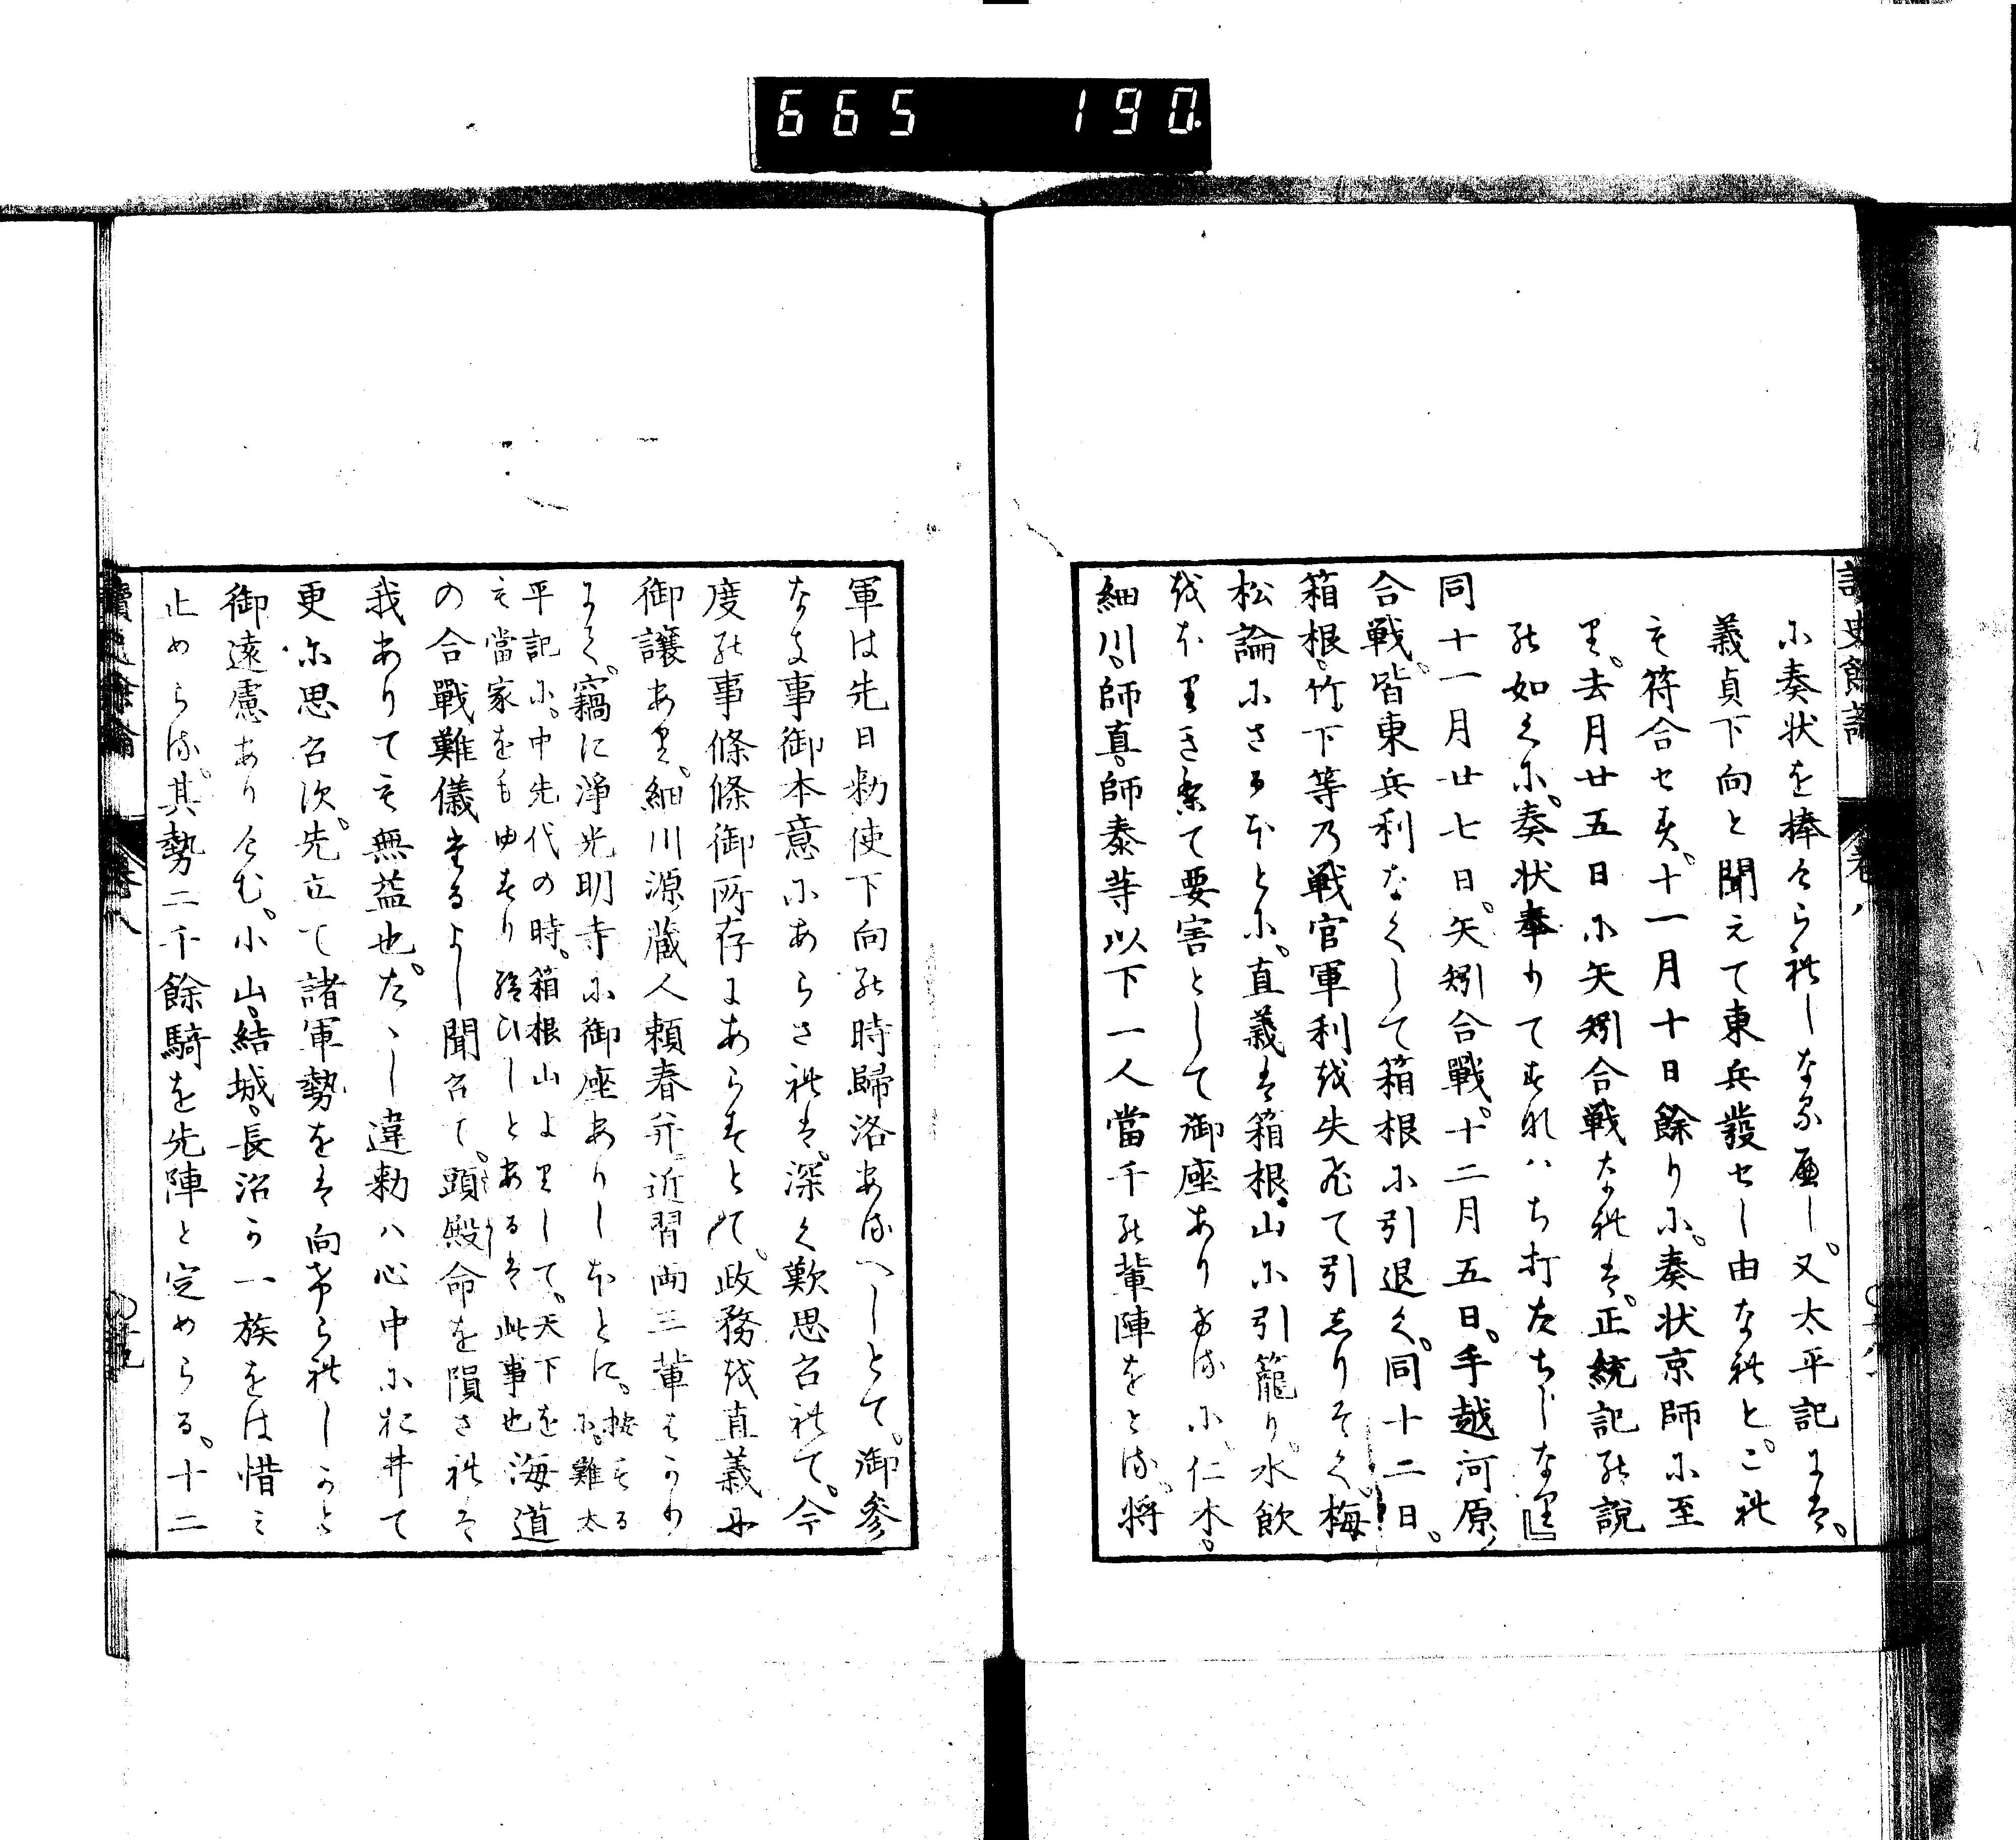 665 190.
讀史餘論 卷八
に奏状を捧けられしなるへし。又太平記には。
義貞下向と聞えて東兵發せし由なれと。これ
も符合せす。十一月十日餘りに。奏状京師に至
り。去月廿五日に矢矧合戦なれは。正統記の說
の如くに。奏状奉りてすなハち打たちしなり』
同十一月廿七日。矢矧合戰。十二月五日。手越河原、
合戦。皆東兵利なくして箱根に引退く。同十二日。
箱根。竹下等乃戦官軍利を失ひて引しりそく。梅
松論にさるほとに。直義は箱根山に引籠り。水飲
をほりきりて要害として御座ありける に。仁木。
細川。師直。師泰等以下一人當千の輩陣をとる。将
軍は先日勅使下向の時歸洛あるへしとて。御参
なき事御本意にあらされは。深く歎思召れて。今
度の事條條御所存にあらすとて。政務を直義に
御讓あり。細川源藏人頼春并近習両三輩はかり
にて。竊に淨光明寺に御座ありしほとに。按する に。難太
平記に。中先代の時。箱根山よりして。天下を
も當家をもゆすり給ひしとあるは此事也海道
の合戰難儀たるよし聞召て。頭殿命を隕されは
我ありても無益也。たゝし違勅ハ心中に於ゐて
更に思召次。先立て諸軍勢をは向けられしかと
御遠慮ありけむ。小山。結城。長沼か一族をは惜ミ
止めらる。其勢二千餘騎を先陣と定めらる。十二
讀史餘論 卷八